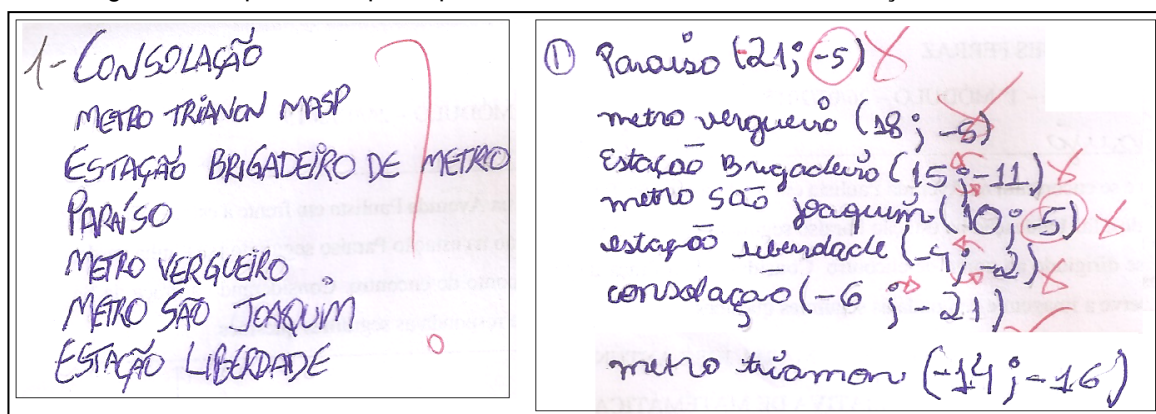 1- CONSOLAÇÃO
METRO TRIANON MASP
ESTAÇÃO BRIGADEIRO DE METRO
PARAÍSO
METRO VERGUEIRO
METRO SÃO JOAQUIM
ESTAÇÃO LIBERDADE
① Paraiso (-21; -5)
metro vergueiro (18; -5)
Estação Brigadeiro (15; -11)
metro são joaquim (10; -5)
estação liberdade (-4; -2)
consolação (-6; -21)
metro trianon (-14; -16)